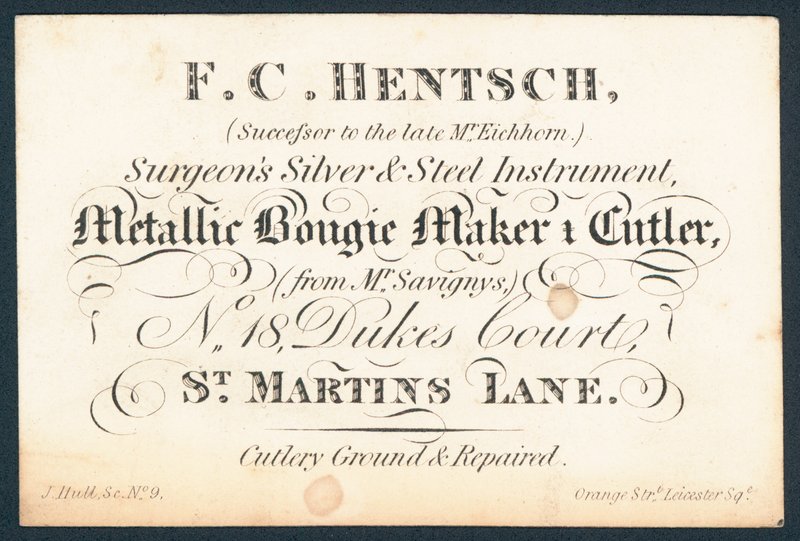 F. C. HENTSCH,
(Succeſsor to the late Mr. Eichhorn.)
Surgeon's Silver & Steel Instrument,
Metallic Bougie Maker & Cutler,
(from Mr. Savignys,)
No. 18, Dukes Court,
ST. MARTINS LANE.
Cutlery Ground & Repaired.
J. Hull, Sc. No. 9. Orange Strt. Leicester Sqe.